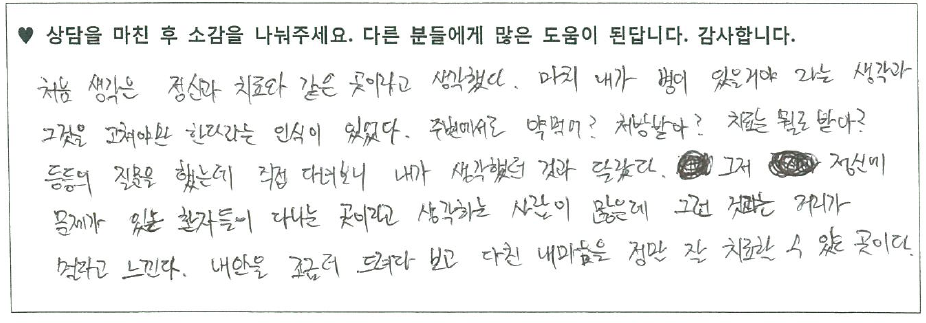 ♥ 상담을 마친 후 소감을 나눠주세요. 다른 분들에게 많은 도움이 된답니다. 감사합니다.
처음 생각은 정신과 치료와 같은 곳이라고 생각했다. 마치 내가 병이 있을거야 라는 생각과
그것을 고쳐야만 한다라는 인식이 있었다. 주변에서도 약먹어? 처방받아? 치료는 뭘로 받아?
등등의 질문을 했는데 직접 다녀보니 내가 생각했던 것과 달랐다. 그저 정신에
문제가 있는 환자들이 다니는 곳이라고 생각하는 사람이 많은데 그런 것과는 거리가
멀다고 느낀다. 내안을 조금더 드려다 보고 다친 내마음을 정말 잘 치료할 수 있는 곳이다.